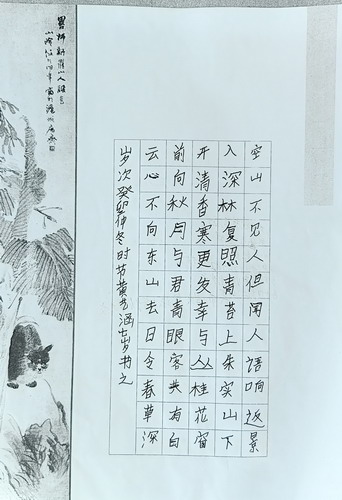 空山不见人但闻人语响返景
入深林复照青苔上朱实山下
开清香寒更发幸与丛桂花窗
前向秋月与君青眼客共有白
云心不向东山去日令春草深
岁次癸卯仲冬时节黄艺涵岁书之